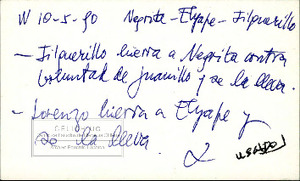 W 10-5-90 Negrita - Elyape - Jilguerillo
- Jilguerillo hierra a Negrita contra
voluntad de Juanillo y se la lleva.
- Lorenzo hierra a Elyape y
se la lleva.
usado